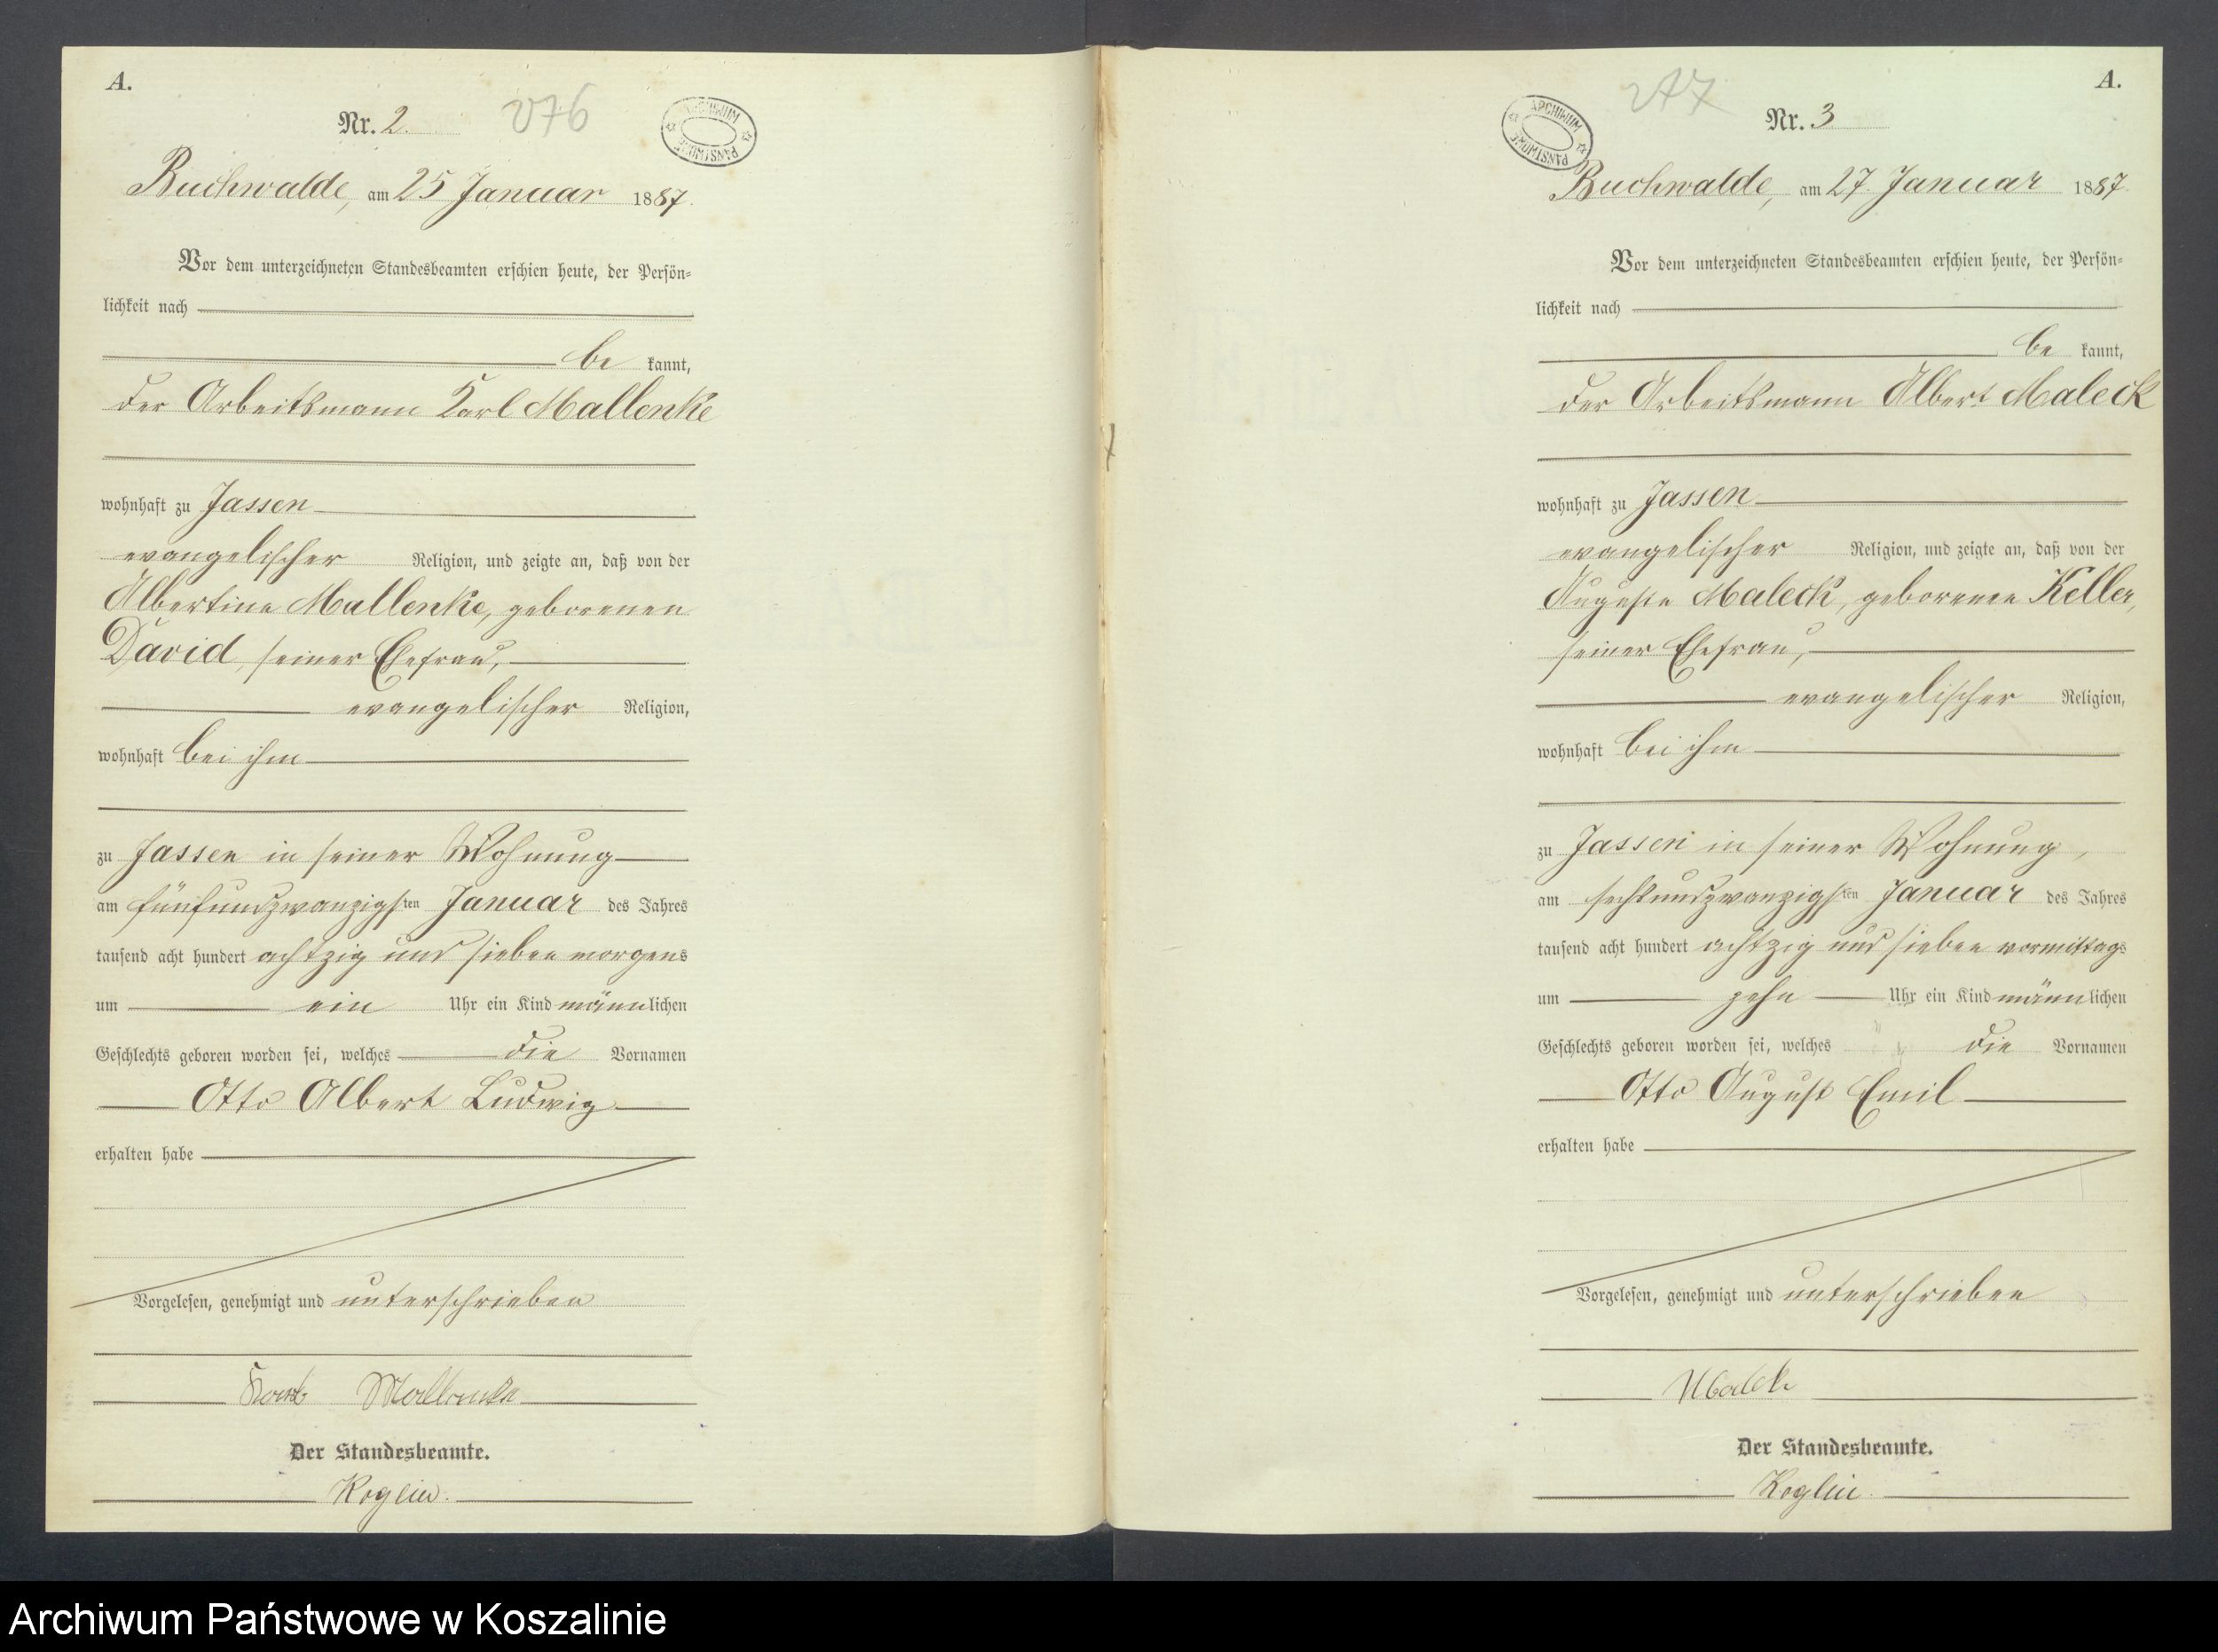 A.
Nr. 2.
276
ARCHIWUM PAŃSTWOWE
Buchwalde, am 25 Januar 1887.
Vor dem unterzeichneten Standesbeamten erschien heute, der Persön=
lichkeit nach
be kannt,
der Arbeitsmann Karl Mallenke
wohnhaft zu Jassen
evangelischer Religion, und zeigte an, daß von der
Albertine Mallenke, geborenen
David, seiner Ehefrau,
evangelischer Religion,
wohnhaft bei ihm
zu Jassen in seiner Wohnung
am fünfundzwanzigsten Januar des Jahres
tausend acht hundert achtzig und sieben morgens
um ein Uhr ein Kind männlichen
Geschlechts geboren worden sei, welches die Vornamen
Otto Albert Ludwig
erhalten habe
Vorgelesen, genehmigt und unterschrieben
Mallenke
Der Standesbeamte.
Koglin.
A.
277
Nr. 3
ARCHIWUM PAŃSTWOWE
Buchwalde, am 27. Januar 1887.
Vor dem unterzeichneten Standesbeamten erschien heute, der Persön=
lichkeit nach
be kannt,
der Arbeitsmann Albert Maleck
wohnhaft zu Jassen
evangelischer Religion, und zeigte an, daß von der
Auguste Maleck, geborenen Keller,
seiner Ehefrau,
evangelischer Religion,
wohnhaft bei ihm
zu Jassen in seiner Wohnung,
am sechsundzwanzigsten Januar des Jahres
tausend acht hundert achtzig und sieben vormittags
um zehn Uhr ein Kind männlichen
Geschlechts geboren worden sei, welches die Vornamen
Otto August Emil
erhalten habe
Vorgelesen, genehmigt und unterschrieben
Der Standesbeamte.
Koglin.
Archiwum Państwowe w Koszalinie